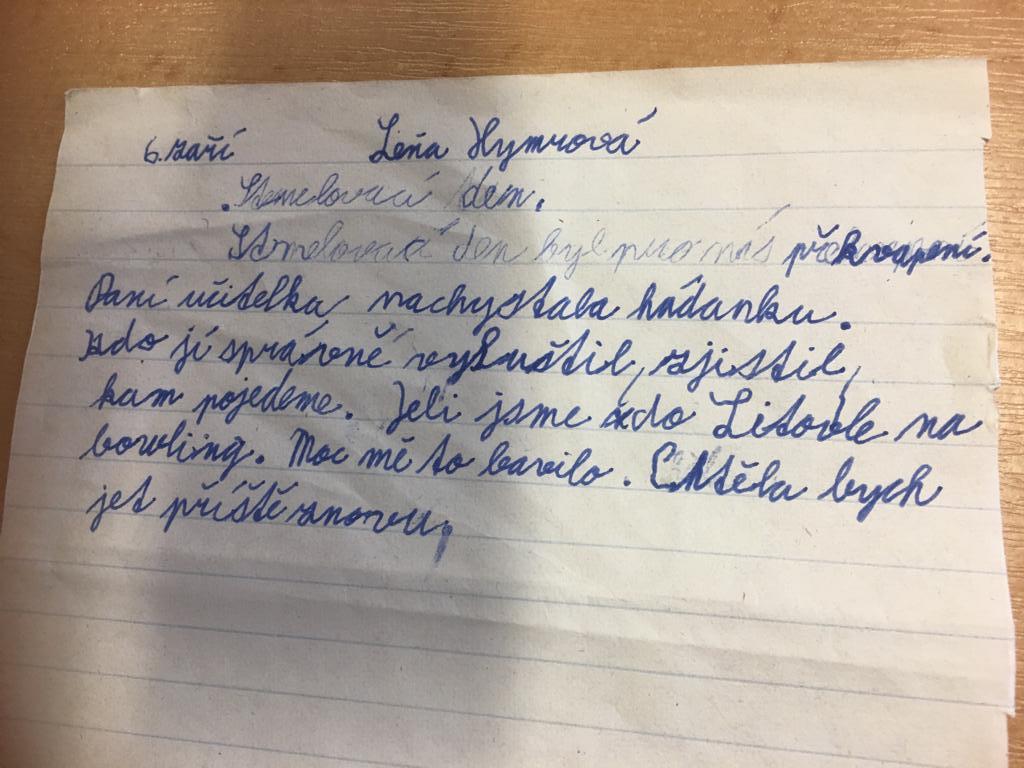 6. září Leňa Hymrová
Stmelovací den.
Stmelovací den byl pro nás překvapení.
Paní učitelka nachystala hádanku.
kdo jí správně vyluštil, zjistil,
kam pojedeme. Jeli jsme do Litovle na
bowling. Moc mě to bavilo. Chtěla bych
jet příště znovu,